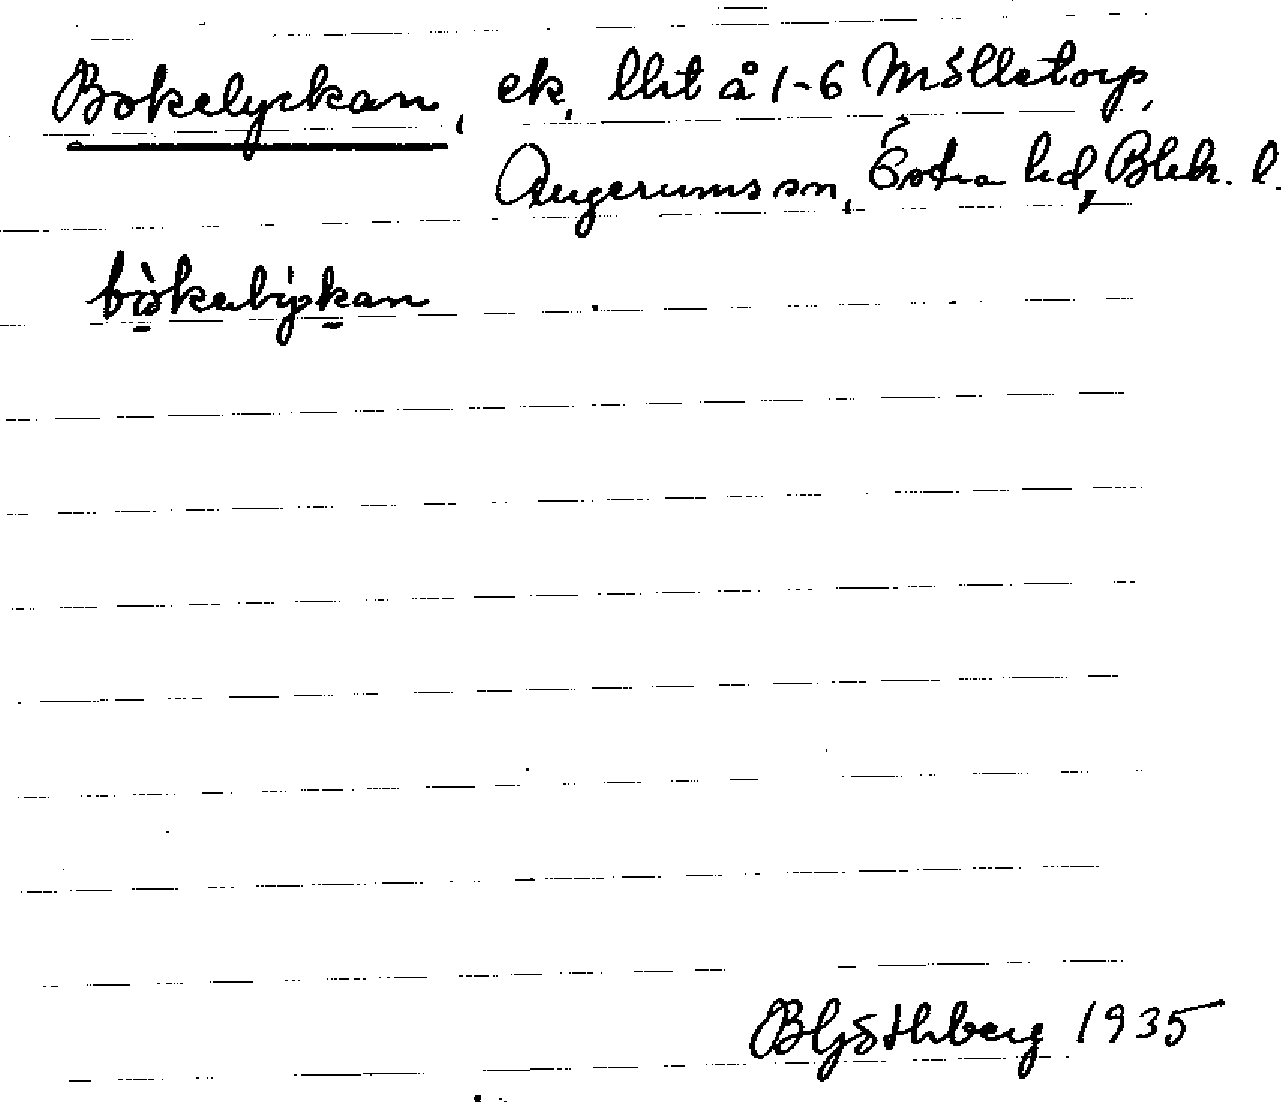 Bokelyckan, ek, llit å 1-6 Mölletorp,
Augerums sn, Östra hd, Blek. l.
bòkelýkan
BGöthberg 1935